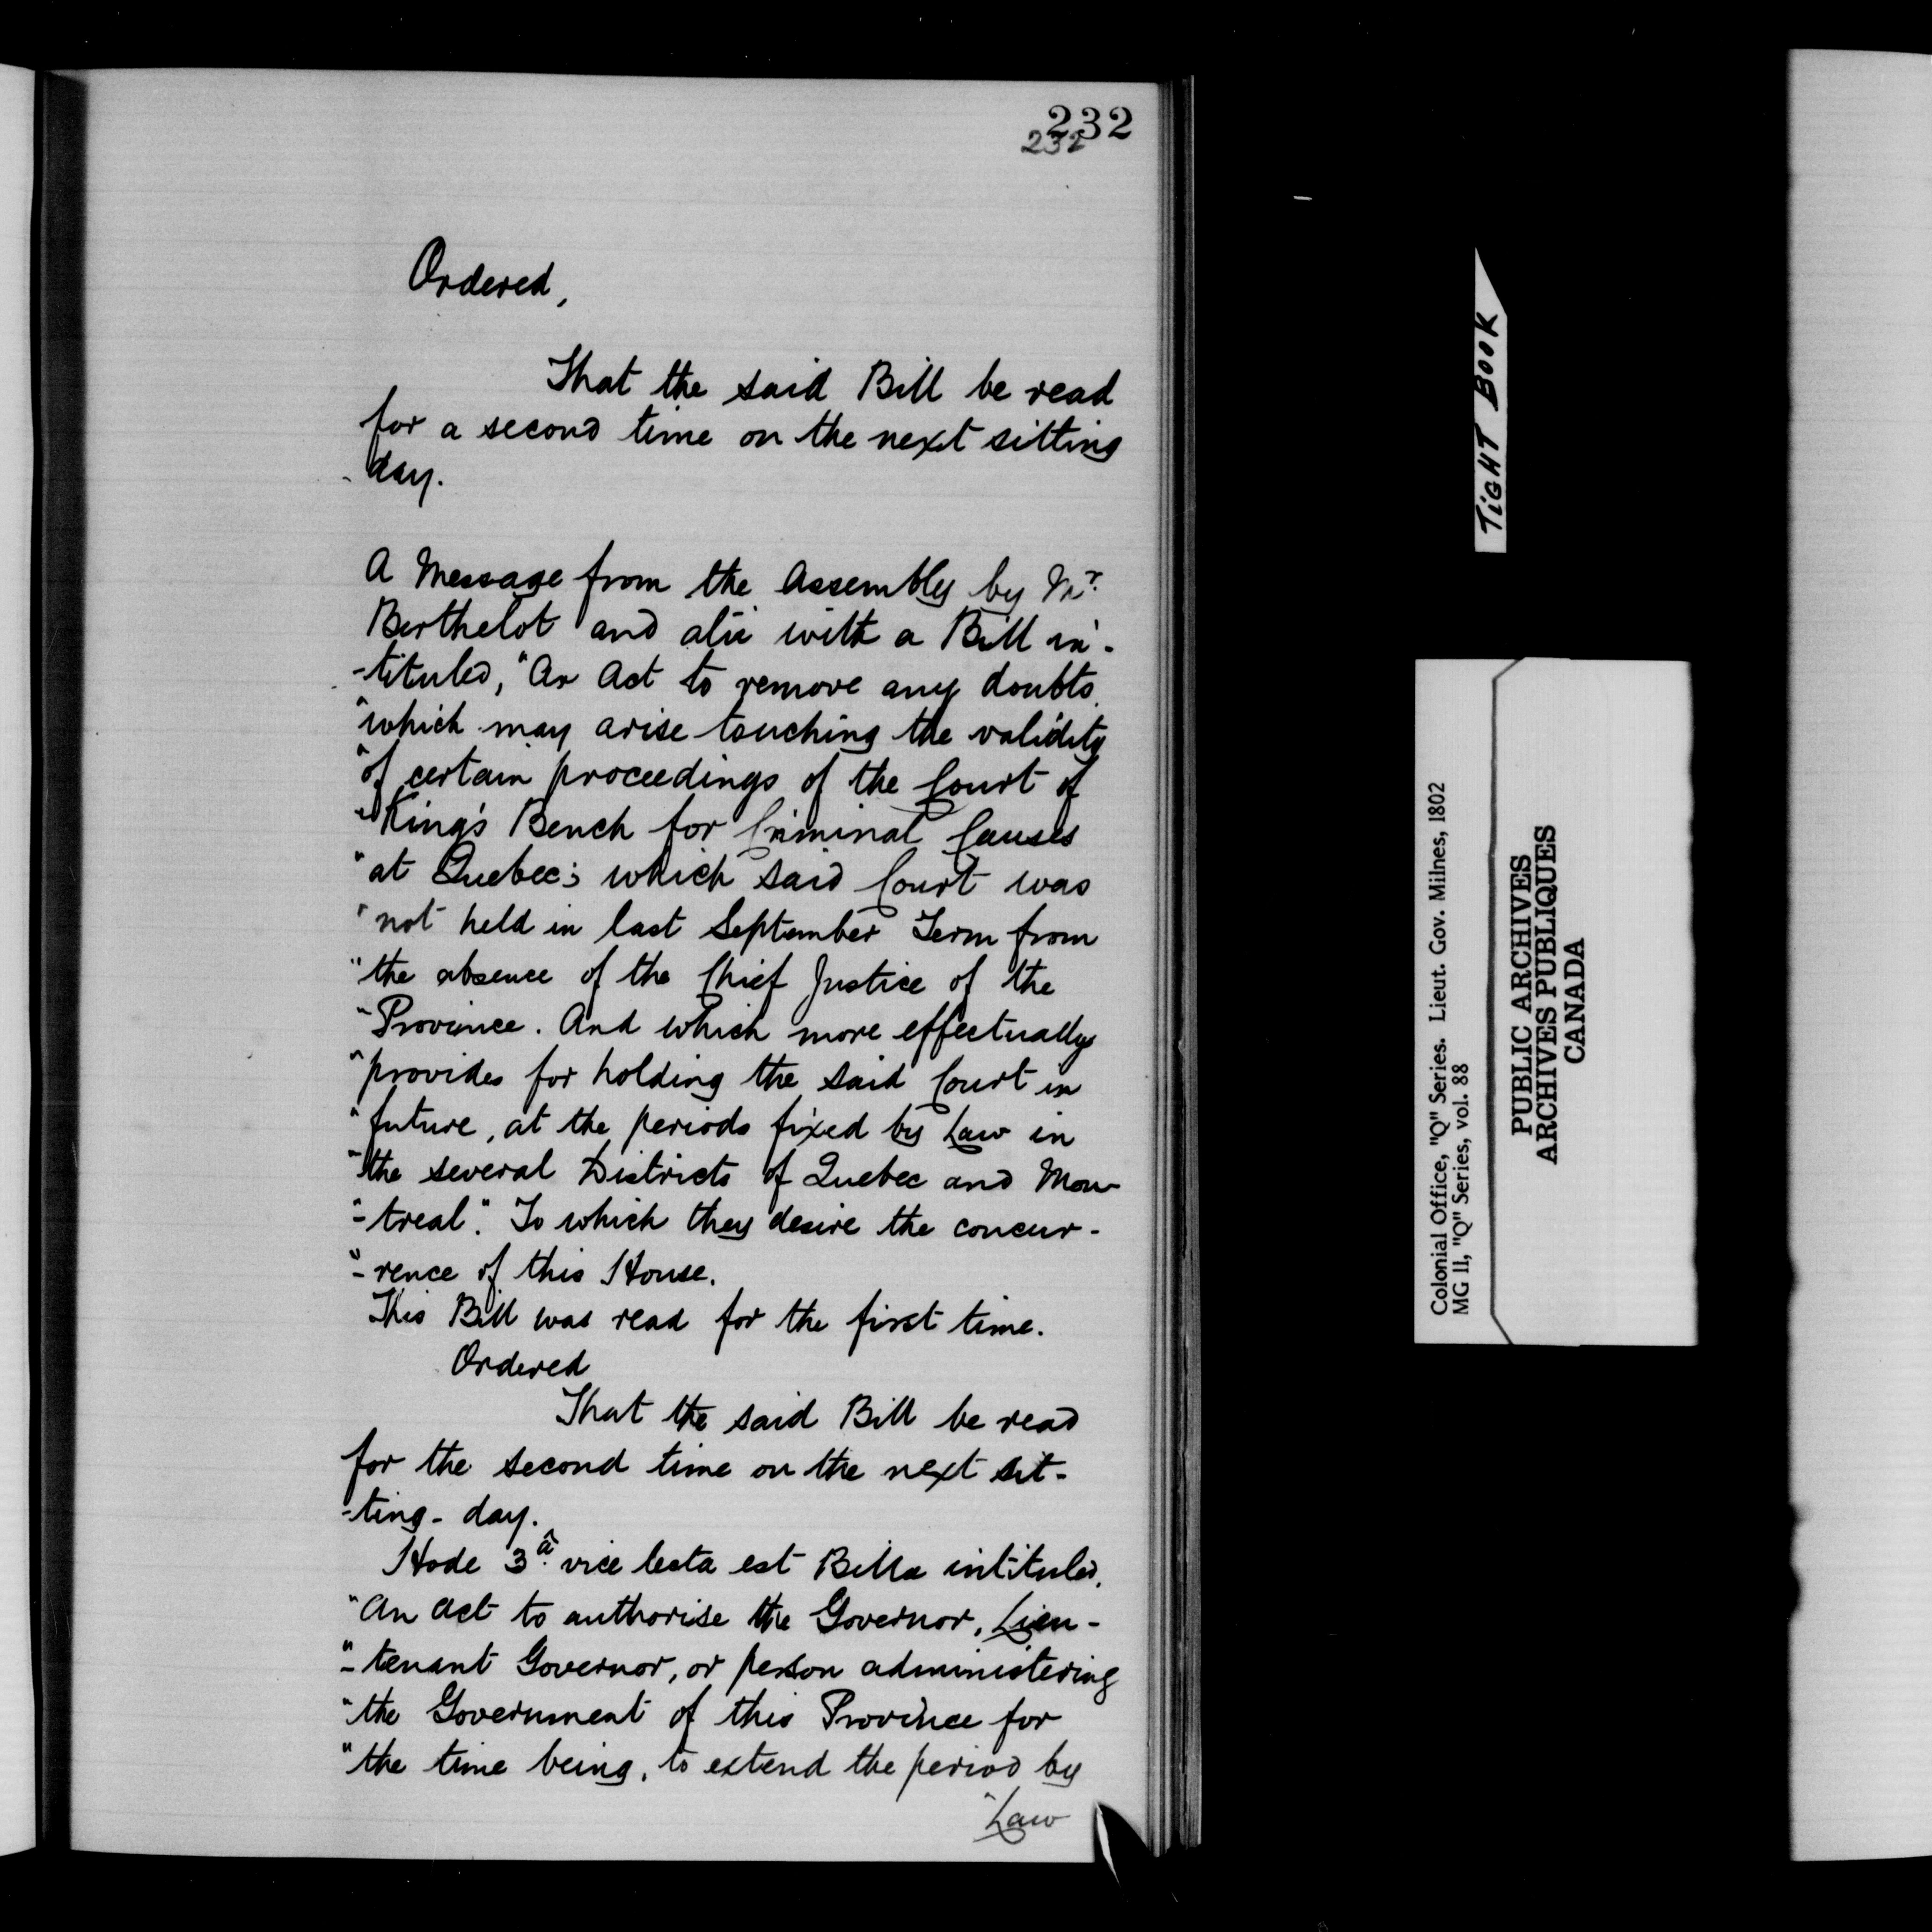 232
232
Ordered,
That the said Bill be read
for a second time on the next sitting
day.
A Message from the Assembly by Mr.
Berthelot and alii with a Bill in-
-tituled, "An Act to remove any doubts
"which may arise touching the validity
"of certain proceedings of the Court of
"King's Bench for Criminal Causes
"at Quebec; which said Court was
"not held in last September Term from
"the absence of the Chief Justice of the
"Province. And which more effectually
"provides for holding the said Court in
"future, at the periods fixed by Law in
"the several Districts of Quebec and Mon-
"-treal." To which they desire the concur-
"-rence of this House.
This Bill was read for the first time.
Ordered
That the said Bill be read
for the second time on the next sit-
-ting-day.
Hode 3a. vice lecta est Billa intituled,
"An Act to authorise the Governor, Lieu-
"-tenant Governor, or person administering
"the Government of this Province for
"the time being, to extend the period by
"Law
TIGHT BOOK
Colonial Office, "Q" Series. Lieut. Gov. Milnes, 1802
MG 11, "Q" Series, vol. 88
PUBLIC ARCHIVES
ARCHIVES PUBLIQUES
CANADA